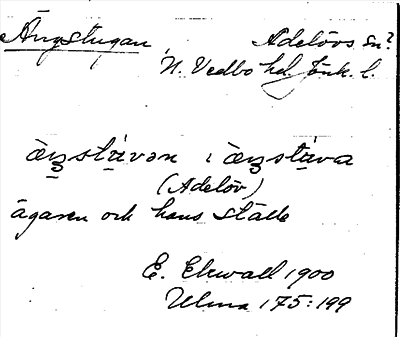 Ängstugan, Adelövs sn?
N. Vedbo hd. Jönk. l.
(Adelöv)
ägaren och hans ställe
E. Ekwall 1900
Ulma 175:199